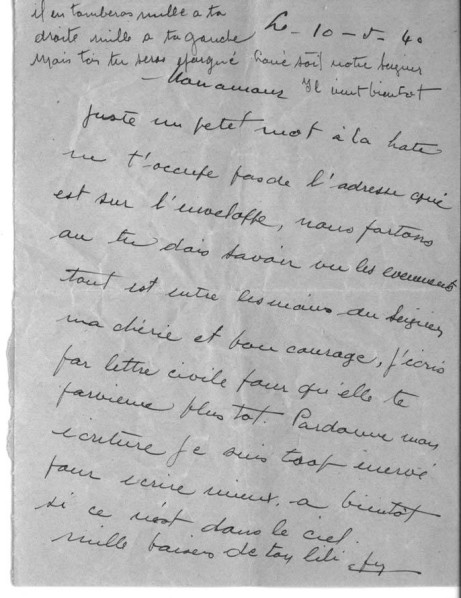 il en tombera mille a ta
droite mille a ta gauche
Mais toi tu seras épargné
Le - 10 - 5 - 40
Loué soit notre Seigneur
Il vient bientot
juste un petit mot à la hate
ne t'occupe pas de l'adresse qui
est sur l'enveloppe, nous partons
ou tu dois savoir vu les evenements
tout est entre les mains du Seigneur
ma chérie et bon courage, j'écris
par lettre civile pour qu'elle te
parvienne plus tot. Pardonne mon
ecriture je suis trop énervé
pour ecrire mieux. a bientôt
si ce n'est dans le ciel.
mille baisers de ton lili